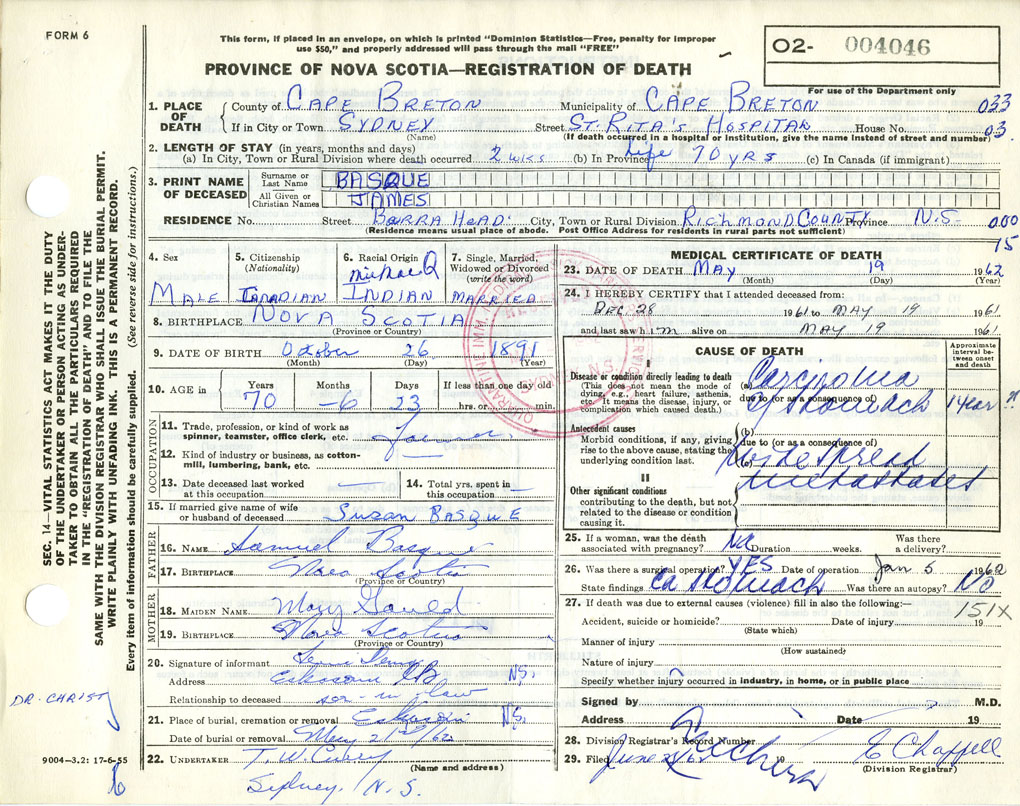 FORM 6
This form, if placed in an envelope, on which is printed "Dominion Statistics—Free, penalty for improper
use $50," and properly addressed will pass through the mail "FREE"
PROVINCE OF NOVA SCOTIA—REGISTRATION OF DEATH
02- 004046
For use of the Department only
1. PLACE OF DEATH { County of CAPE BRETON Municipality of CAPE BRETON 033
If in City or Town SYDNEY Street ST. RITA'S HOSPITAL House No. 03
(Name) (If death occurred in a hospital or institution, give the name instead of street and number)
2. LENGTH OF STAY (in years, months and days)
(a) In City, Town or Rural Division where death occurred 2 wks (b) In Province life 70 yrs (c) In Canada (if immigrant)
3. PRINT NAME OF DECEASED { Surname or Last Name BASQUE
All Given or Christian Names JAMES
RESIDENCE No. Street BARRA HEAD. City, Town or Rural Division RICHMOND COUNTY Province N.S. 000
(Residence means usual place of abode. Post Office Address for residents in rural parts not sufficient)
15
4. Sex 5. Citizenship (Nationality) 6. Racial Origin 7. Single, Married, Widowed or Divorced (write the word)
MALE CANADIAN INDIAN MARRIED
8. BIRTHPLACE NOVA SCOTIA
(Province or Country)
9. DATE OF BIRTH October 26 1891
(Month) (Day) (Year)
10. AGE in Years Months Days If less than one day old
70 6 23 hrs. or min.
OCCUPATION
11. Trade, profession, or kind of work as
spinner, teamster, office clerk, etc.
12. Kind of industry or business, as cotton-
mill, lumbering, bank, etc.
13. Date deceased last worked
at this occupation —
14. Total yrs. spent in
this occupation —
15. If married give name of wife
or husband of deceased Susan BASQUE
FATHER
16. NAME Samuel Basque
17. BIRTHPLACE Nova Scotia
(Province or Country)
MOTHER
18. MAIDEN NAME Mary Gould
19. BIRTHPLACE Nova Scotia
(Province or Country)
20. Signature of informant
Address Eskasoni CB N.S.
Relationship to deceased son-in-law
21. Place of burial, cremation or removal Eskasoni N.S.
Date of burial or removal May /62
22. UNDERTAKER T.W. Curry
(Name and address)
Sydney, N.S.
9004-3.2: 17-6-55
MEDICAL CERTIFICATE OF DEATH
23. DATE OF DEATH MAY 19 1962
(Month) (Day) (Year)
24. I HEREBY CERTIFY that I attended deceased from:
DEC. 28 1961 to MAY 19 1961
and last saw him alive on MAY 19 1961
CAUSE OF DEATH
Approximate interval between onset and death
I
Disease or condition directly leading to death
(This does not mean the mode of
dying, e.g., heart failure, asthenia,
etc. It means the disease, injury, or
complication which caused death.)
(a) Carcinoma
due to (or as a consequence of)
of stomach 1 year
Antecedent causes
Morbid conditions, if any, giving
rise to the above cause, stating the
underlying condition last.
(b)
due to (or as a consequence of)
(c) Widespread
metastases
II
Other significant conditions
contributing to the death, but not
related to the disease or condition
causing it.
25. If a woman, was the death
associated with pregnancy? No Duration weeks. Was there
a delivery?
26. Was there a surgical operation? YES Date of operation Jan 5 1962
State findings Ca stomach Was there an autopsy? No
27. If death was due to external causes (violence) fill in also the following:— 151X
Accident, suicide or homicide? Date of injury 19
(State which)
Manner of injury
(How sustained)
Nature of injury
Specify whether injury occurred in industry, in home, or in public place
Signed by M.D.
Address Date 19
28. Division Registrar's Record Number
29. Filed June 19 E Chappell
(Division Registrar)
SEC. 14—VITAL STATISTICS ACT MAKES IT THE DUTY
OF THE UNDERTAKER OR PERSON ACTING AS UNDER-
TAKER TO OBTAIN ALL THE PARTICULARS REQUIRED
IN THE "REGISTRATION OF DEATH" AND TO FILE THE
SAME WITH THE DIVISION REGISTRAR WHO SHALL ISSUE THE BURIAL PERMIT.
WRITE PLAINLY WITH UNFADING INK. THIS IS A PERMANENT RECORD.
Every item of information should be carefully supplied. (See reverse side for instructions.)
DR. CHRIST